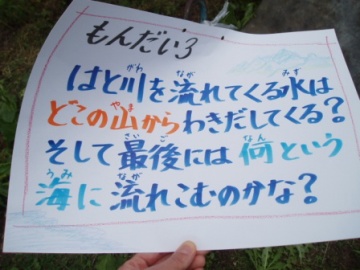 もんだい3
はと川を流れてくる水は
どこの山からわきだしてくる?
そして最後には何という
海に流れこむのかな?